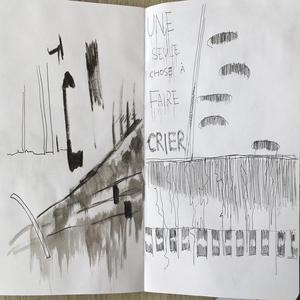 UNE
SEULE
CHOSE À
FAIRE
CRIER